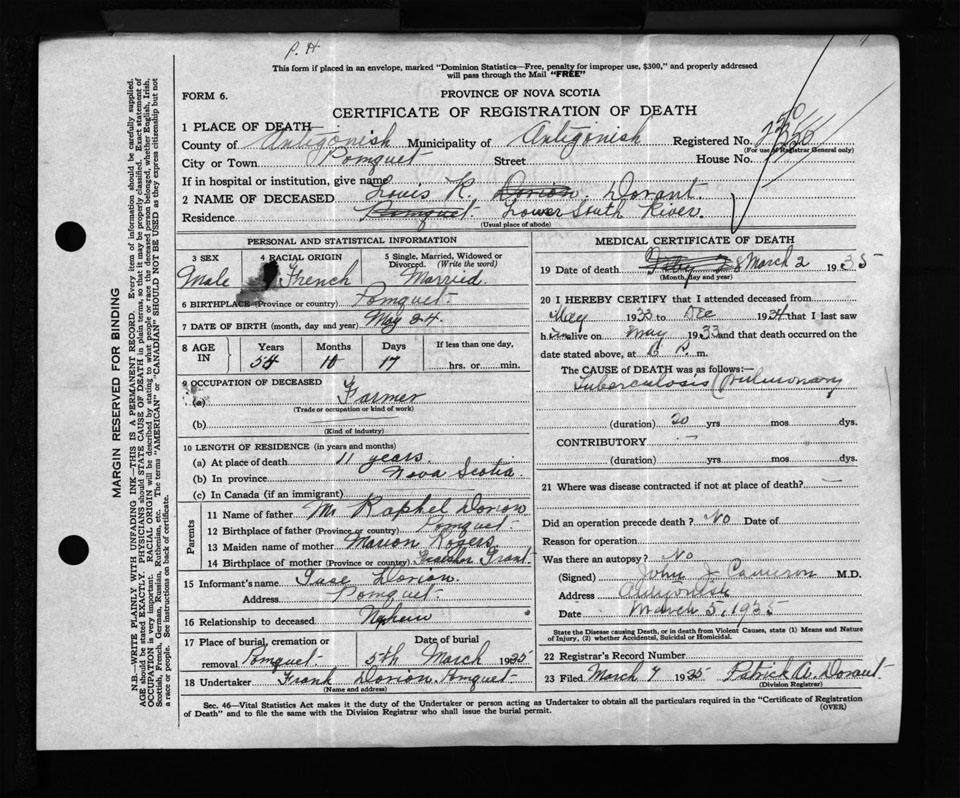 P. H
This form if placed in an envelope, marked "Dominion Statistics—Free, penalty for improper use, $300," and properly addressed
will pass through the Mail "FREE"
FORM 6.
PROVINCE OF NOVA SCOTIA
CERTIFICATE OF REGISTRATION OF DEATH
1 PLACE OF DEATH
County of Antigonish Municipality of Antigonish Registered No.
(For use of Registrar General only)
City or Town Pomquet Street House No.
If in hospital or institution, give name
2 NAME OF DECEASED Louis R. Dorion. Dorant.
Residence Pomquet. Lower South River.
(Usual place of abode)
MARGIN RESERVED FOR BINDING
N.B.—WRITE PLAINLY WITH UNFADING INK—THIS IS A PERMANENT RECORD. Every item of information should be carefully supplied.
AGE should be stated EXACTLY. PHYSICIANS should STATE CAUSE OF DEATH in plain terms, so that it may be properly classified. Exact statement of
OCCUPATION is very important. RACIAL ORIGIN will be described by stating to what people or race the deceased person belonged, whether English, Irish,
Scottish, French, German, Russian, Ruthenian, etc. The terms "AMERICAN" or "CANADIAN" SHOULD NOT BE USED as they express citizenship but not
a race or people. See instructions on back of certificate.
PERSONAL AND STATISTICAL INFORMATION
3 SEX 4 RACIAL ORIGIN 5 Single, Married, Widowed or
Divorced. (Write the word)
Male French Married.
6 BIRTHPLACE (Province or country) Pomquet.
7 DATE OF BIRTH (month, day and year) May 24
8 AGE IN Years Months Days If less than one day,
54 10 17 hrs. or min.
9 OCCUPATION OF DECEASED
(a) Farmer
(Trade or occupation or kind of work)
(b)
(Kind of industry)
10 LENGTH OF RESIDENCE (in years and months)
(a) At place of death 11 years
(b) In province Nova Scotia.
(c) In Canada (if an immigrant)
Parents
11 Name of father Mr Raphel Dorion
12 Birthplace of father (Province or country) Pomquet.
13 Maiden name of mother Marion Rogers
14 Birthplace of mother (Province or country) Grant
15 Informant's name Dorion.
Address Pomquet.
16 Relationship to deceased Nephew
17 Place of burial, cremation or Date of burial
removal Pomquet. 5th March 1935
18 Undertaker Frank Dorion. Pomquet.
(Name and address)
MEDICAL CERTIFICATE OF DEATH
19 Date of death March 2 1935
(Month, day and year)
20 I HEREBY CERTIFY that I attended deceased from
May 1933 to Dec 1934 that I last saw
h im alive on May 1933 and that death occurred on the
date stated above, at m.
The CAUSE of DEATH was as follows:—
Tuberculosis (Pulmonary
(duration) 20 yrs mos dys.
CONTRIBUTORY
(duration) yrs mos dys.
21 Where was disease contracted if not at place of death?
Did an operation precede death? No Date of
Reason for operation
Was there an autopsy? No
(Signed) John J Cameron M.D.
Address Antigonish
Date March 5, 1935
State the Disease causing Death, or in death from Violent Causes, state (1) Means and Nature
of Injury, (2) whether Accidental, Suicidal or Homicidal.
22 Registrar's Record Number
23 Filed March 7 1935 Patrick A. Dorant.
(Division Registrar)
Sec. 46—Vital Statistics Act makes it the duty of the Undertaker or person acting as Undertaker to obtain all the particulars required in the "Certificate of Registration
of Death" and to file the same with the Division Registrar who shall issue the burial permit.
(OVER)